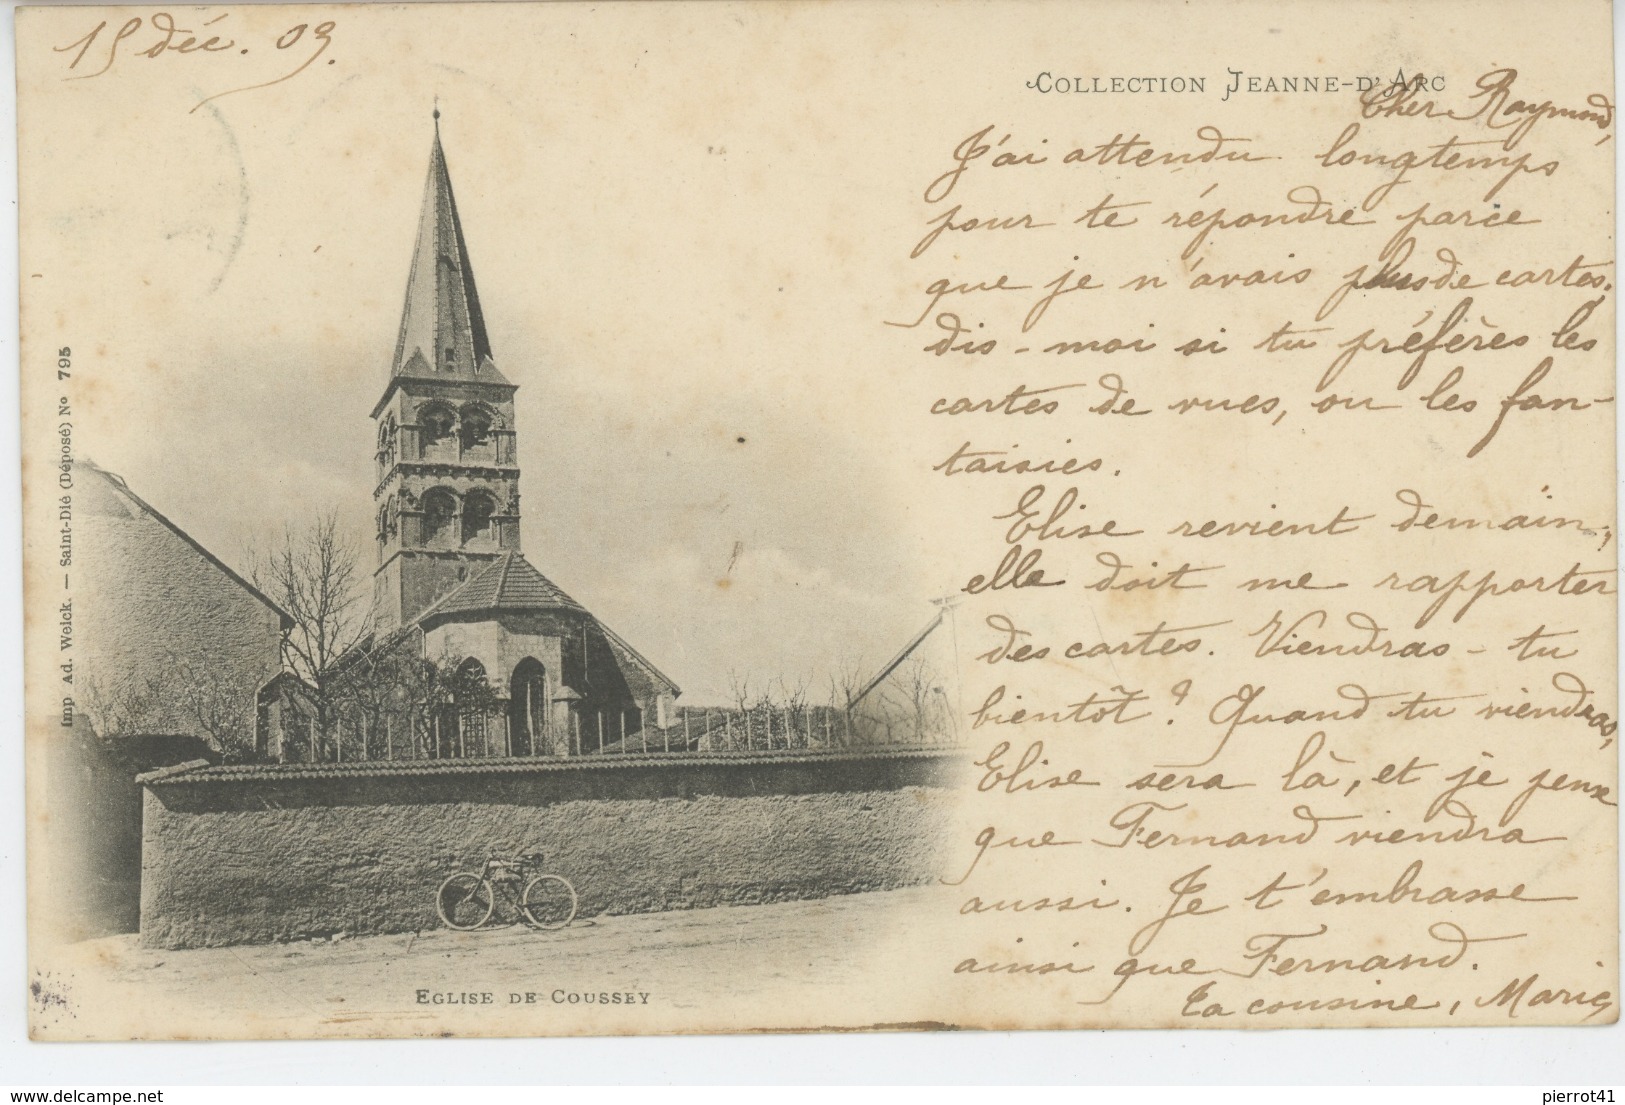 15 déc. 03.
COLLECTION JEANNE-D'ARC
Cher Raymond,
J'ai attendu longtemps
pour te répondre parce
que je n'avais plus de cartes.
dis-moi si tu préfères les
cartes de vues, ou les fan-
taisies.
Elise revient demain;
elle doit me rapporter
des cartes. Viendras-tu
bientôt? Quand tu viendras,
Elise sera là, et je pense
que Fernand viendra
aussi. Je t'embrasse
ainsi que Fernand.
Ta cousine, Marie
Imp Ad. Weick. — Saint-Dié (Déposé) No 795
EGLISE DE COUSSEY
www.delcampe.net
pierrot41